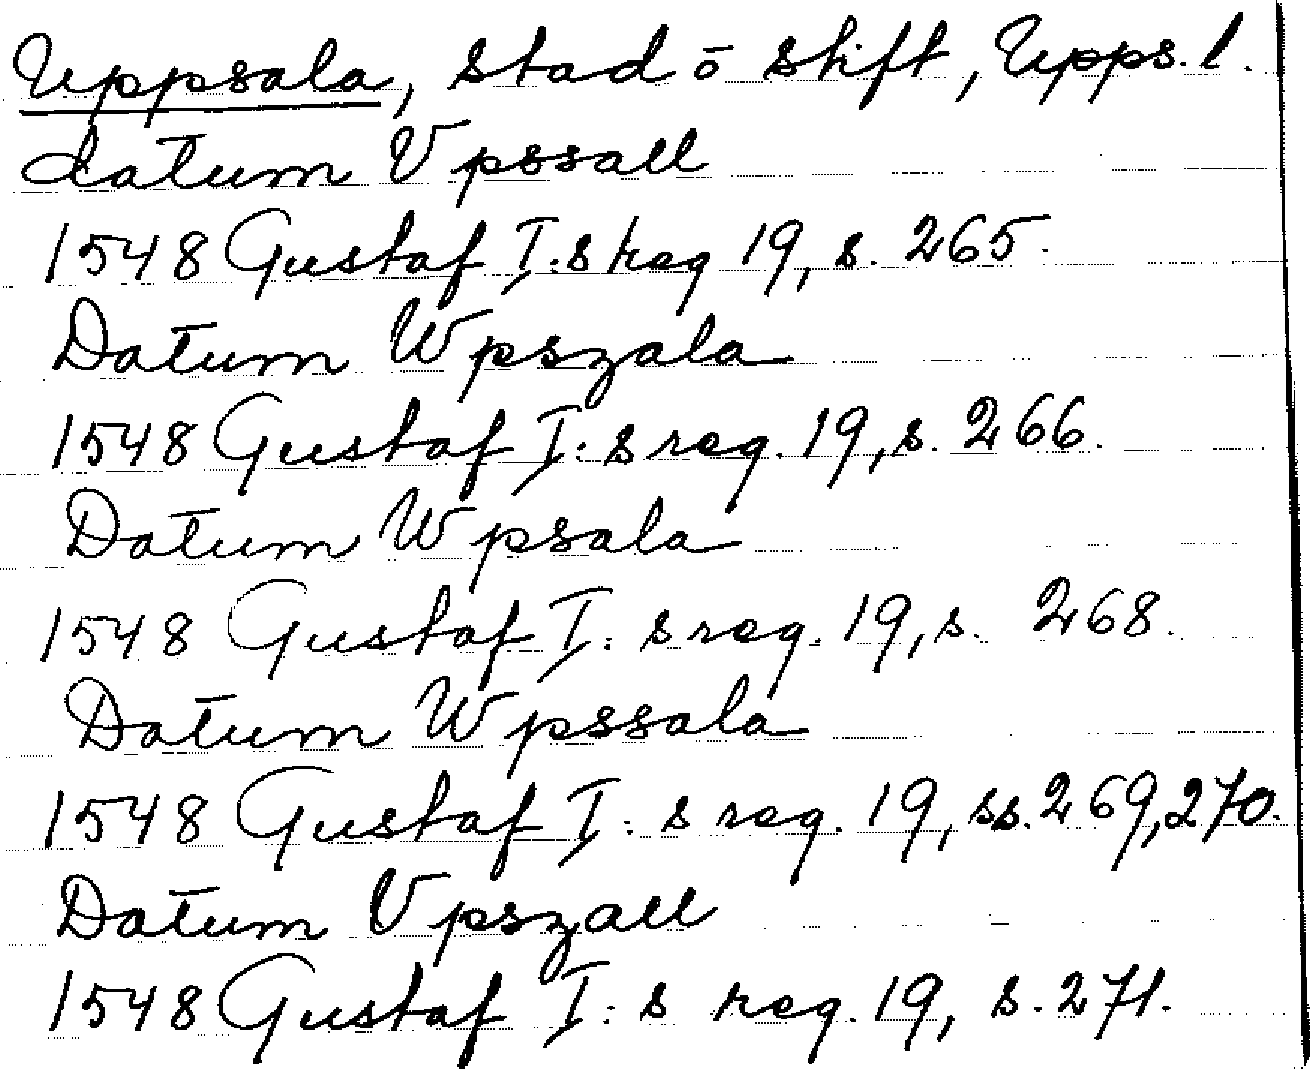 Uppsala, stad ō stift, Upps. l.
datum Vpssall
1548 Gustaf I:s reg 19, s. 265.
Datum Wpszala
1548 Gustaf I:s reg. 19, s. 266.
Datum Wpsala
1548 Gustaf I:s reg. 19, s. 268.
Datum Wpssala
1548 Gustaf I:s reg. 19, ss. 269, 270.
Datum Vpszall
1548 Gustaf I:s reg. 19, s. 271.